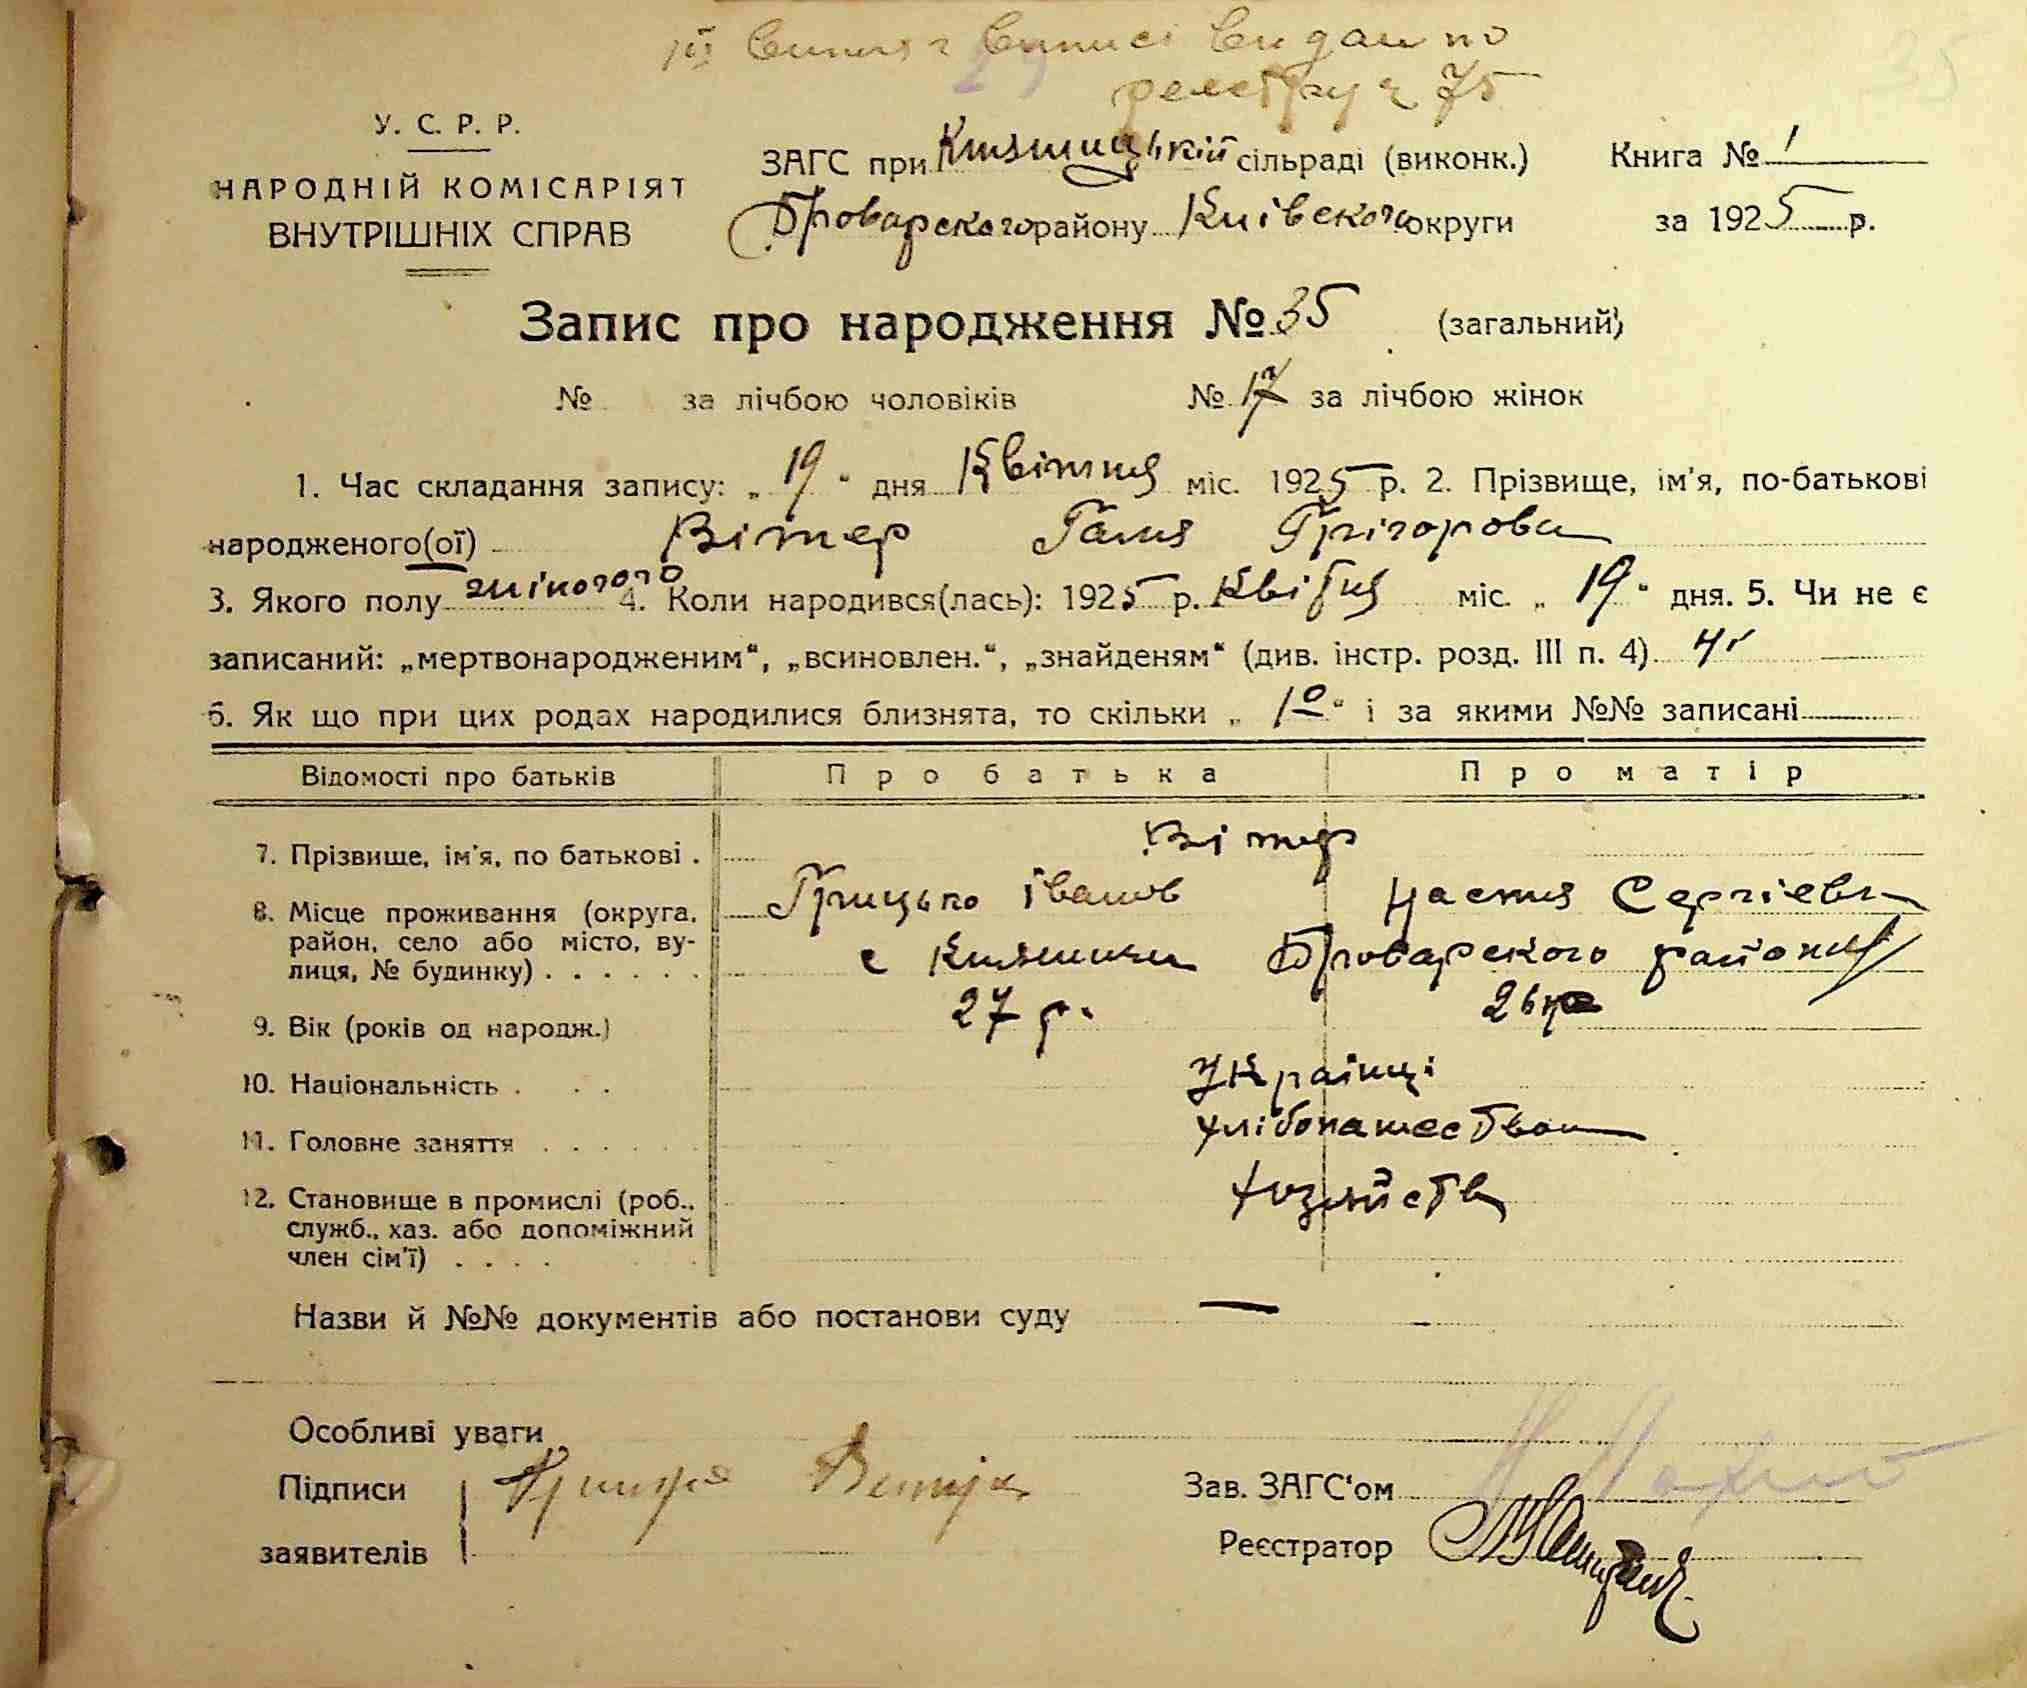 видан по
реєстру 75
35
У. С. Р. Р.
НАРОДНІЙ КОМІСАРІЯТ
ВНУТРІШНІХ СПРАВ
ЗАГС при Княжицькій сільраді (виконк.) Книга № 1
Броварского району Київского округи за 1925 р.
Запис про народження № 35 (загальний)
№ за лічбою чоловіків № 17 за лічбою жінок
1. Час складання запису: „ 19 “ дня Квітня міс. 1925 р. 2. Прізвище, ім'я, по-батькові
народженого(ої) Вітер Галя Грігорова
3. Якого полу жіночого 4. Коли народився(лась): 1925 р. Квітня міс. „ 19 “ дня. 5. Чи не є
записаний: „мертвонародженим“, „всиновлен.“, „знайденям“ (див. інстр. розд. III п. 4) ні
6. Як що при цих родах народилися близнята, то скільки „ 1о “ і за якими №№ записані
Відомості про батьків Про батька Про матір
7. Прізвище, ім'я, по батькові . Вітер
8. Місце проживання (округа, Грицько Іванов Настя Сергієвна
район, село або місто, ву-
лиця, № будинку) . . . . . . с Княжичи Броварского району
9. Вік (років од народж.) 27 р. 26 р
10. Національність . . . Українці
11. Головне заняття . . . . . . хлібопашество
12. Становище в промислі (роб., хозяйств
служб., хаз. або допоміжний
член сім'ї) . . . .
Назви й №№ документів або постанови суду —
Особливі уваги
Підписи
Зав. ЗАГС'ом
заявителів
Реєстратор